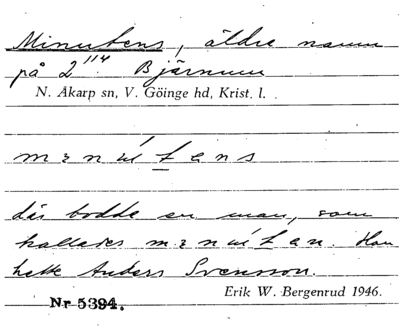 Minutens, äldre namn
på 2¹¹⁴ Bjärnum
N. Åkarp sn, V. Göinge hd, Krist. l.
där bodde en man, som
kallades Han
hette Anders Svensson.
Erik W. Bergenrud 1946.
Nr 5394.